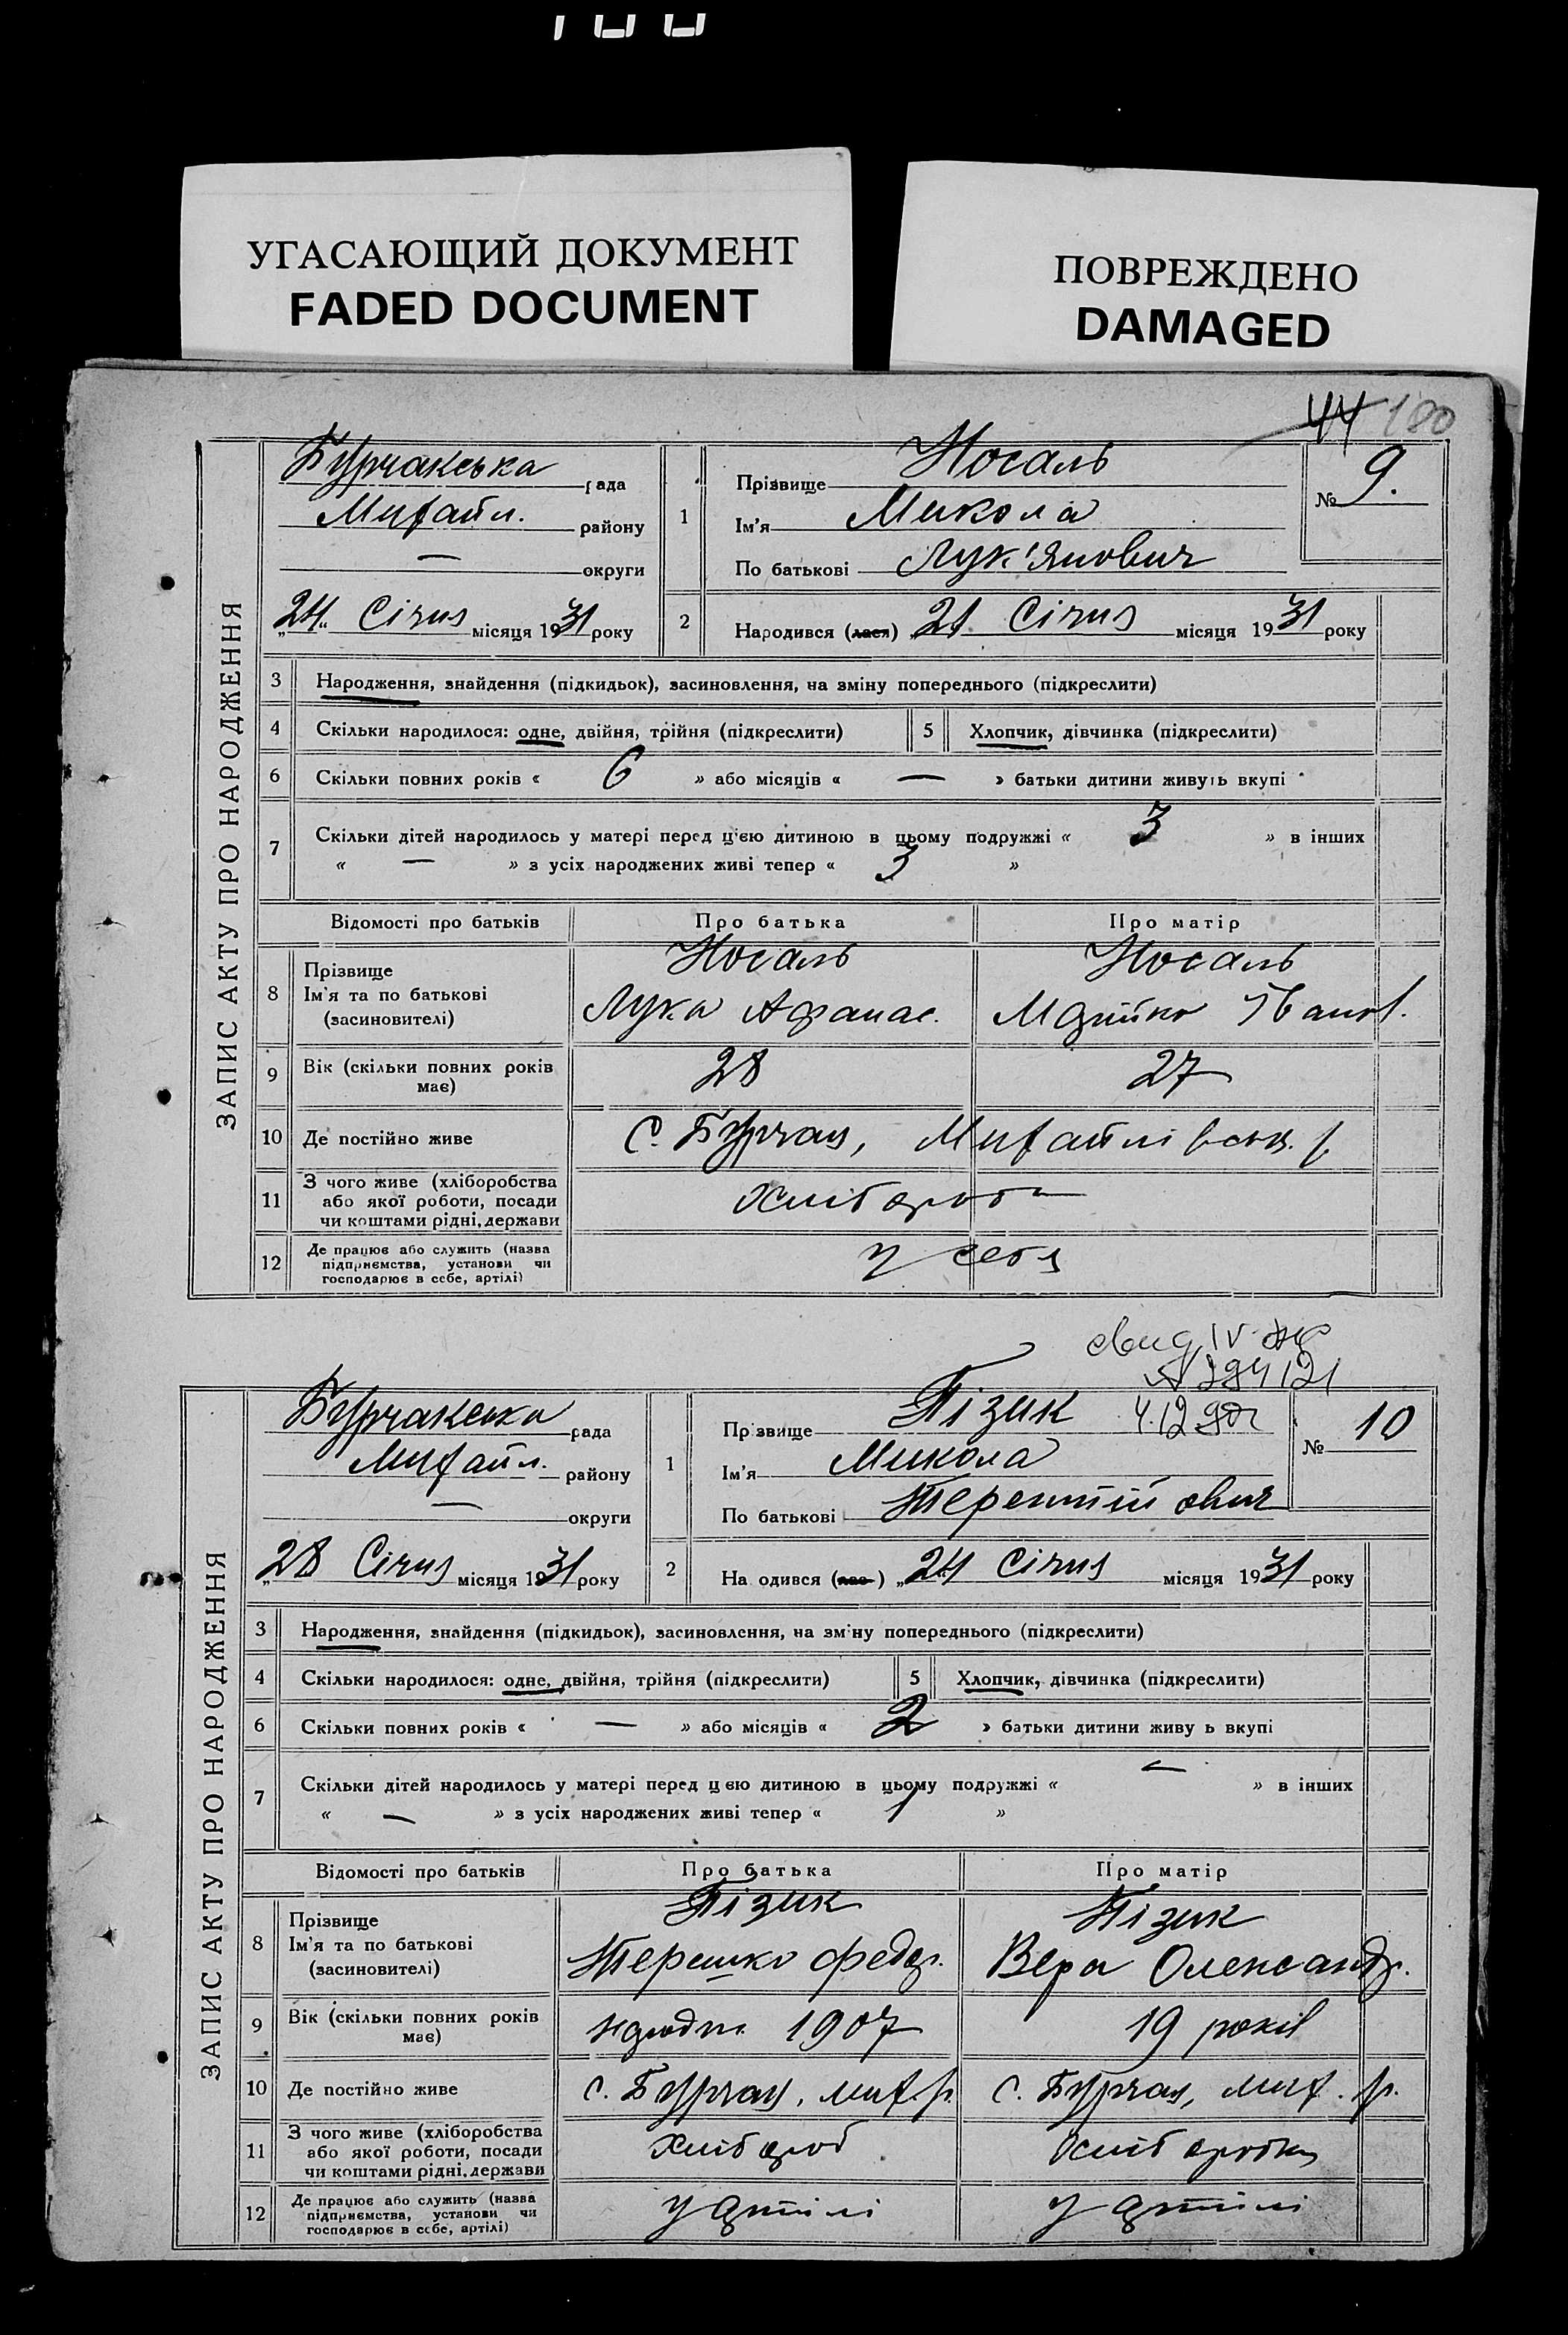 УГАСАЮЩИЙ ДОКУМЕНТ
FADED DOCUMENT
ПОВРЕЖДЕНО
DAMAGED
44 180
ЗАПИС АКТУ ПРО НАРОДЖЕННЯ
Бурчакська рада
Михайл. району
— округи
„24„ Січня місяця 1931 року
1
Прізвище Носаль
Ім'я Микола
По батькові Лук'янович
№ 9.
2 Народився (лася) 21 Січня місяця 1931 року
3 Народження, знайдення (підкидьок), засиновлення, на зміну попереднього (підкреслити)
4 Скільки народилося: одне, двійня, трійня (підкреслити) 5 Хлопчик, дівчинка (підкреслити)
6 Скільки повних років « 6 » або місяців « — » батьки дитини живуть вкупі
7 Скільки дітей народилось у матері перед цією дитиною в цьому подружжі « 3 » в інших
« — » з усіх народжених живі тепер « 3 »
Відомості про батьків Про батька Про матір
8 Прізвище Носаль Носаль
Ім'я та по батькові Лука Афанас. Іванов.
(засиновителі)
9 Вік (скільки повних років 28 27
має)
10 Де постійно живе С. Бурчак, Михайлівськ. р.
11 З чого живе (хліборобства
або якої роботи, посади
чи коштами рідні, держави
12 Де працює або служить (назва у себя
підприємства, установи чи
господарює в себе, артілі)
IV
294121
ЗАПИС АКТУ ПРО НАРОДЖЕННЯ
Бурчакська рада
Михайл. району
— округи
„28 Січня місяця 1931 року
1
Пр звище Пізик 4.12
Ім'я Микола
По батькові Терентійович
№ 10
2 На одився (лас ) „24 Січня місяця 1931 року
3 Народження, знайдення (підкидьок), засиновлення, на зміну попереднього (підкреслити)
4 Скільки народилося: одне, двійня, трійня (підкреслити) 5 Хлопчик, дівчинка (підкреслити)
6 Скільки повних років « — » або місяців « 2 » батьки дитини живу ь вкупі
7 Скільки дітей народилось у матері перед цією дитиною в цьому подружжі « — » в інших
« — » з усіх народжених живі тепер « 1 »
Відомості про батьків Про батька Про матір
8 Прізвище Пізик Пізик
Ім'я та по батькові Терешко Федор. Вера Олександр.
(засиновителі)
9 Вік (скільки повних років 1907 19 років
має)
10 Де постійно живе с. Бурчак, мих. р. с. Бурчак, мих. р.
11 З чого живе (хліборобства Хлібороб Хліборобка
або якої роботи, посади
чи коштами рідні, держави
12 Де працює або служить (назва У артілі У артілі
підприємства, установи чи
господарює в себе, артілі)